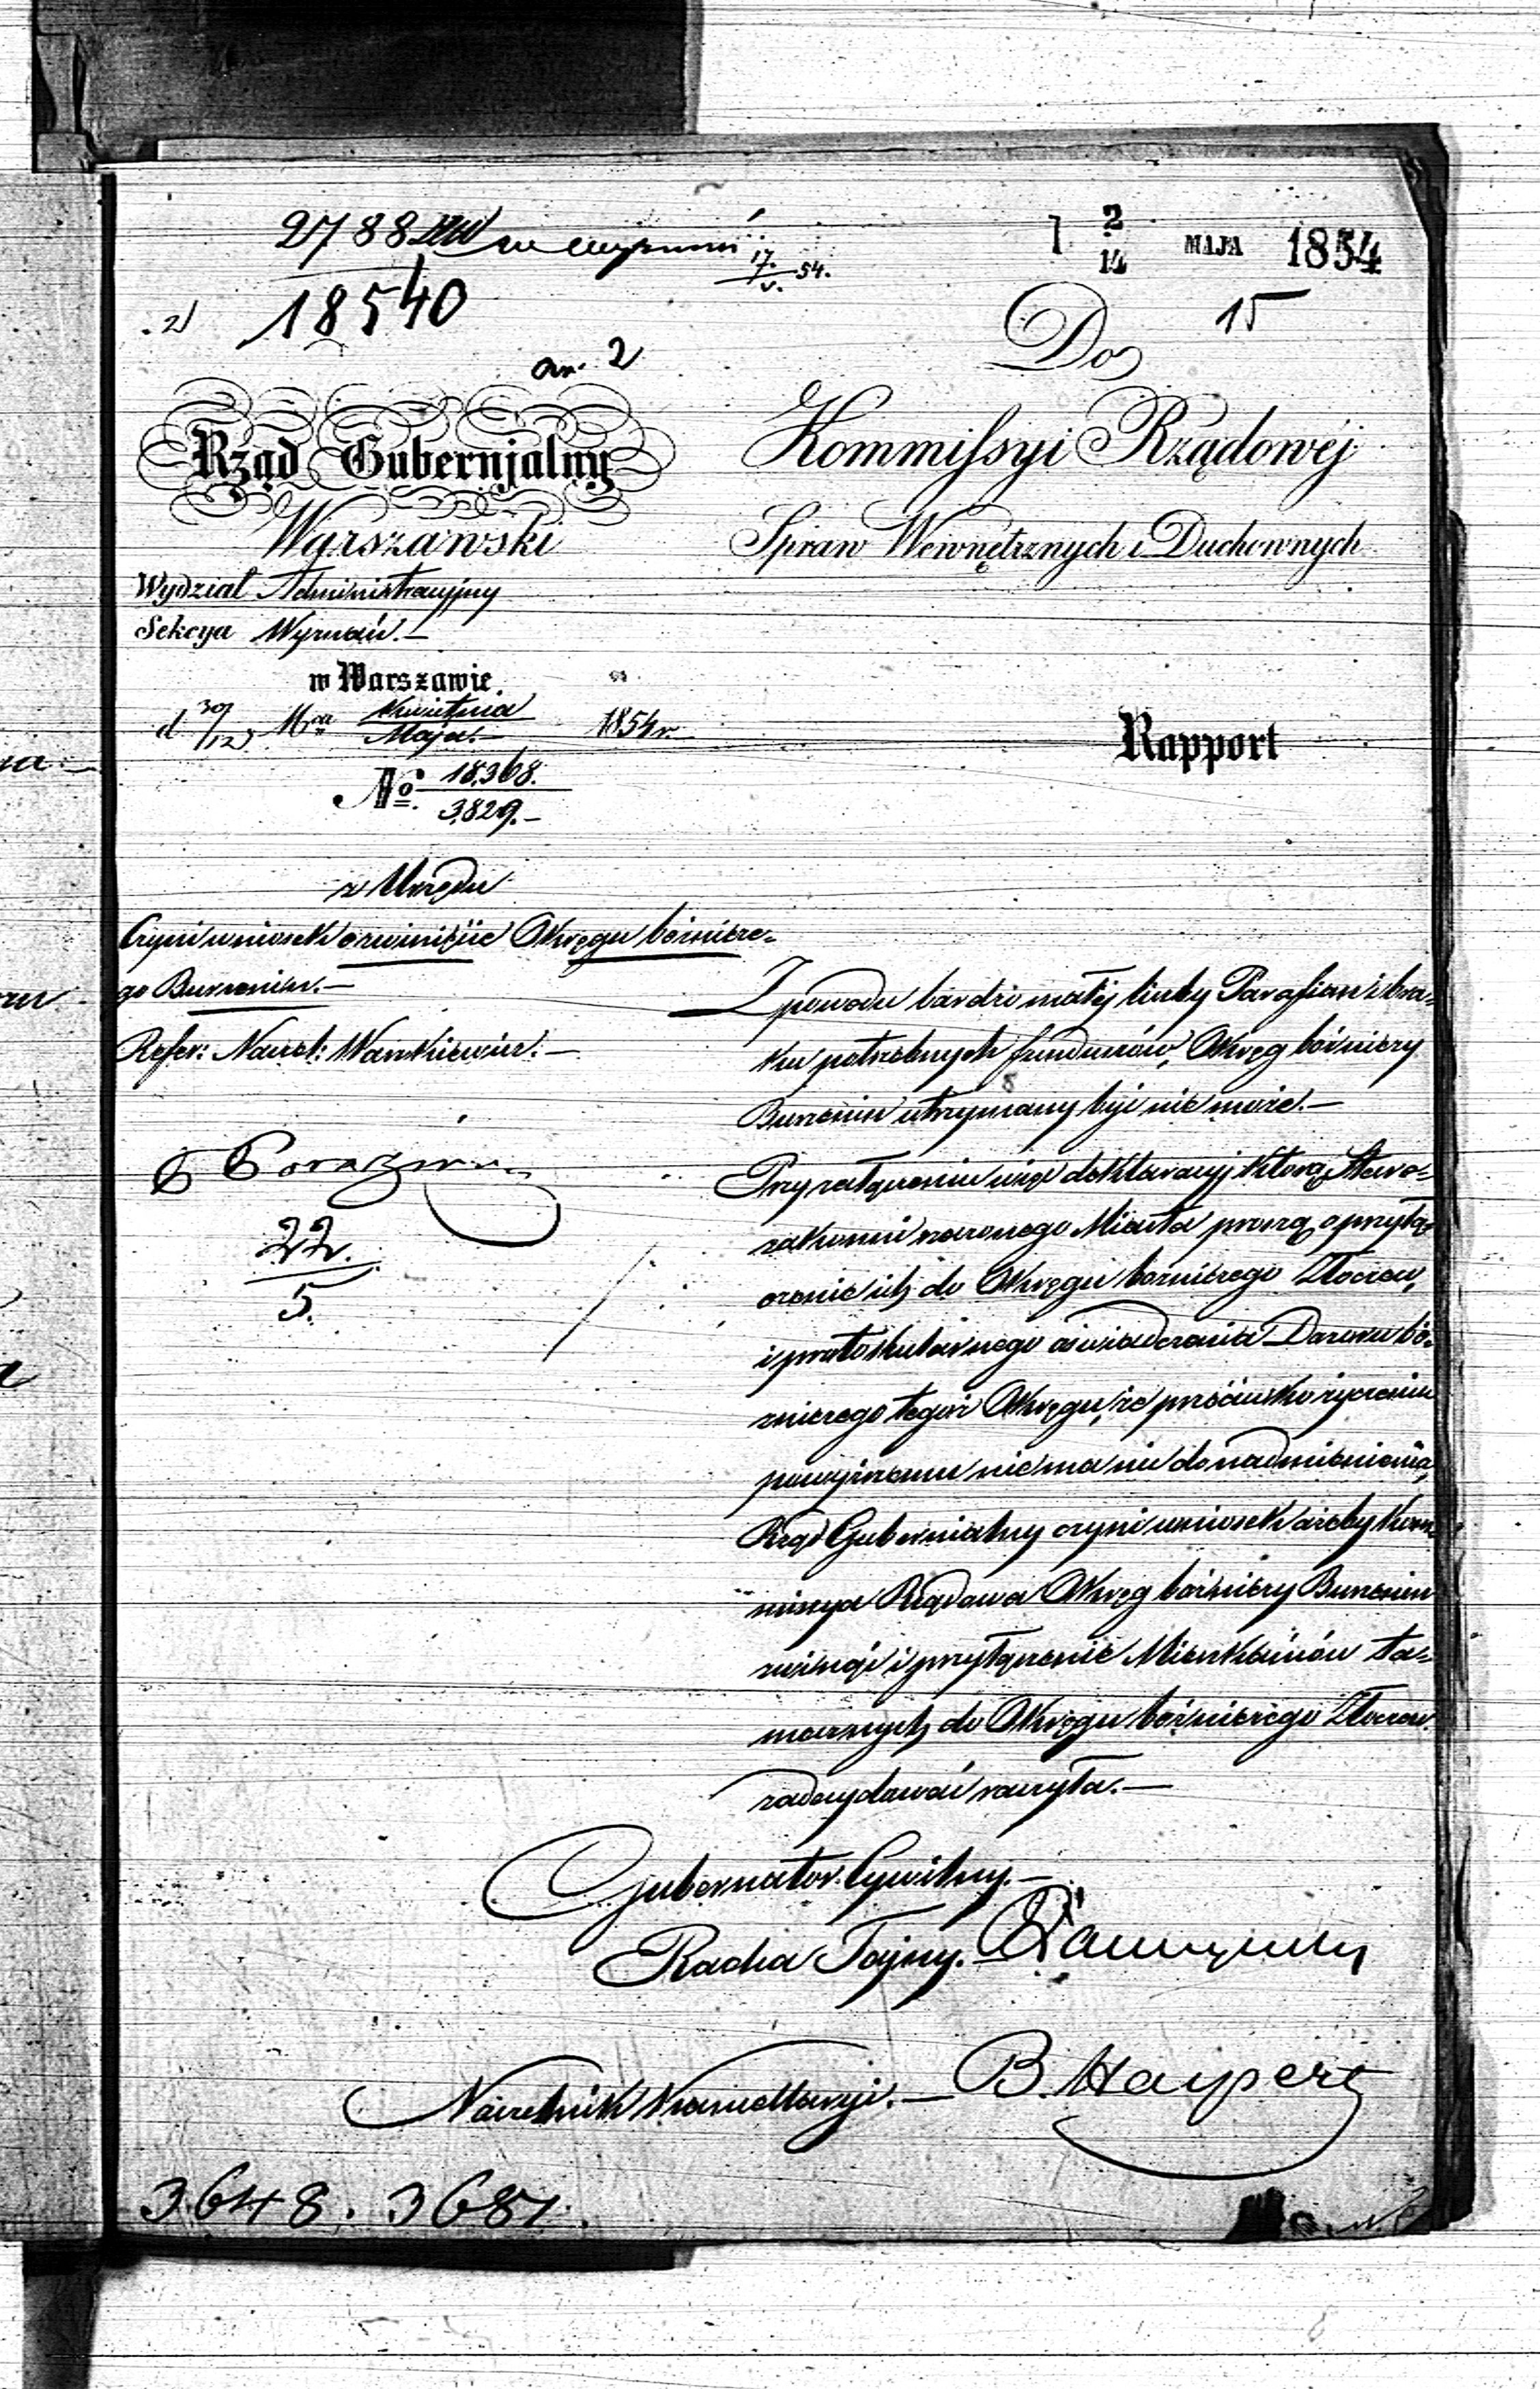 2788
2/14 MAJA 1854
18540
15
an. 2
17./v. 54.
Do
Rząd Gubernjalny
Warszawski
Kommissyi Rządowéj
Spraw Wewnętrznych i Duchownych
Wydział Administracyjny
Sekcya Wyznań.—
w Warszawie
d 30/12 Mca Kwietnia/Maja.— 1854 r.
Rapport
No. 18,368./3,829.—
z Urzędu
Czyni wniosek o zwinięcie Okręgu bóżnicze-
go Burzenin.—
Refer: Naczel:
Z powodu bardzo małéj liczby Parafian i bra-
ku potrzebnych funduszów, Okręg bóżniczy
Burzenin utrzymany być nie może.—
Przy załączeniu więc deklaracyj którą Staro-
zakonni rzeczonego Miasta proszą o przyłą-
czenie ich do Okręgu bożniczego Złoczew,
i protokularnego oświadczenia Dozoru bó-
żniczego tegoż Okręgu, że przeciwko życzeniu
powyższemu nie ma nic do nadmienienia,
Rząd Gubernialny czyni wniosek ażeby Kom-
missya Rządowa Okręg bóżniczy Burzenin
zwinąć i przyłączenie Mieszkańców ta-
mecznych do Okręgu bóżniczego Złoczew
zadecydować raczyła.—
22./5.
Gubernator Cywilny.—
Radca Tajny.
Naczelnik Kancellaryi.— B. Haypert
3648. 3681.